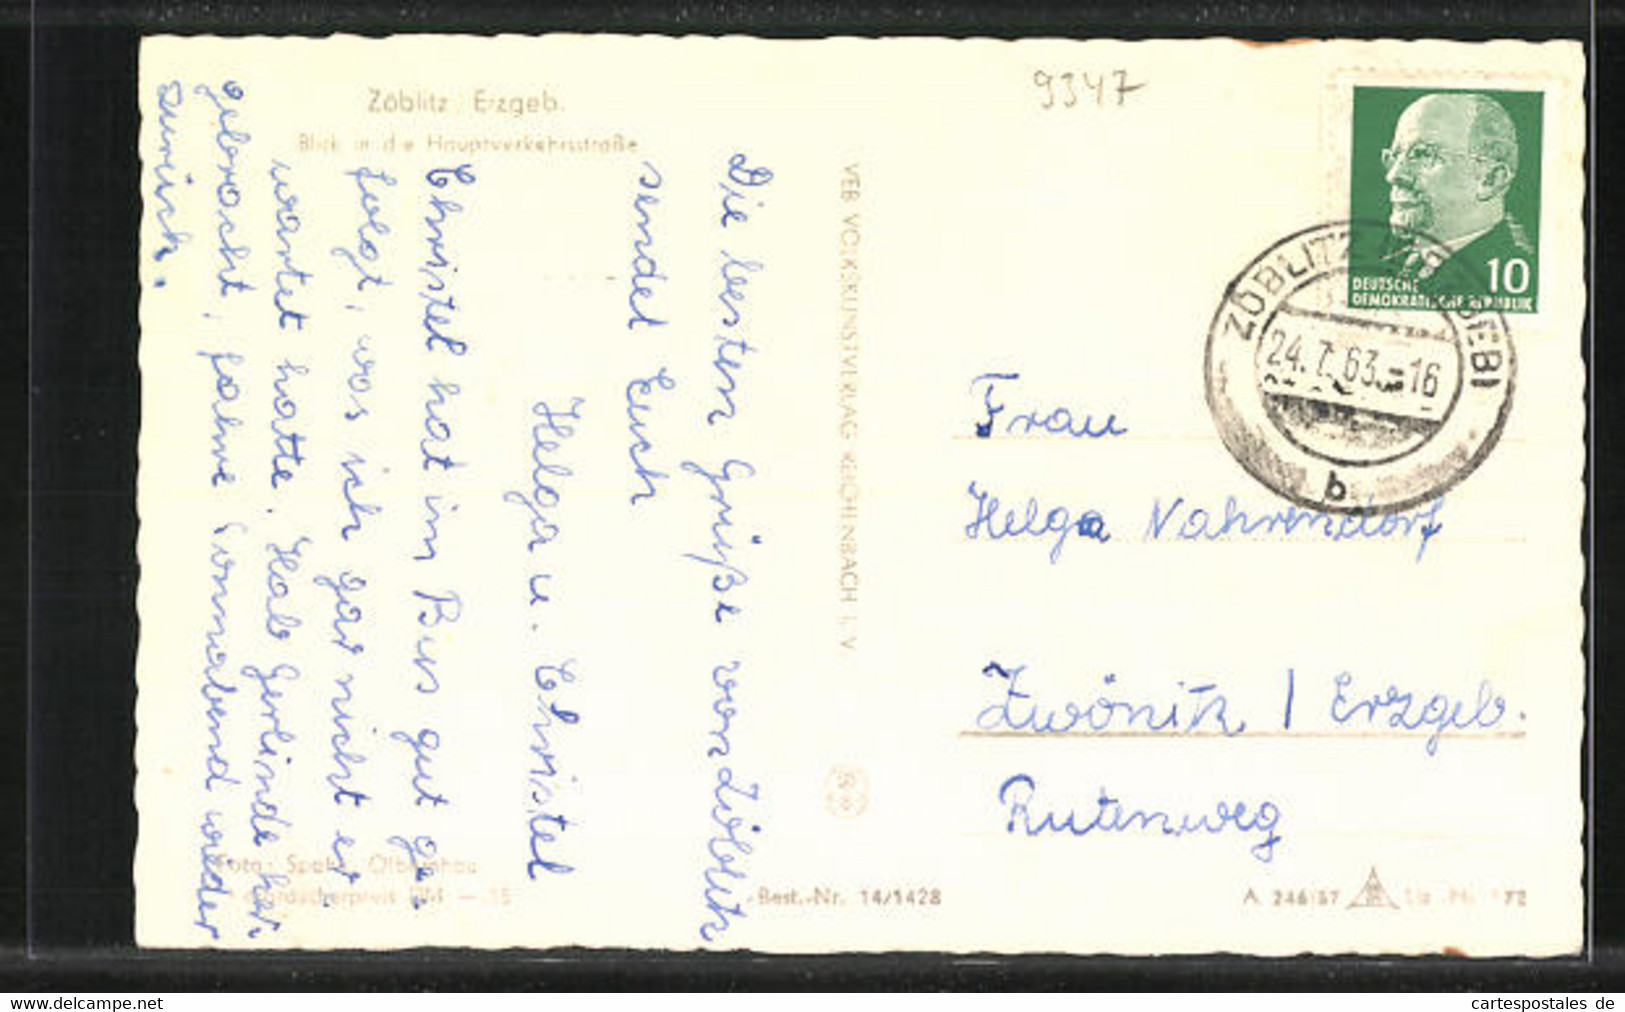 Zöblitz Erzgeb.
Blick in die Hauptverkehrsstraße
9347
Die besten Grüße von Zöblitz
sendet Euch
Helga u. Christel
Christel hat im Bus gut ge-
folgt, was ich gar nicht er-
wartet hatte. Hab Gerlinde her-
gebracht, fahre Sonnabend wieder
zurück.
VEB VOLKSKUNSTVERLAG REICHENBACH I. V
DEUTSCHE
DEMOKRATISCHE REPUBLIK
10
ZÖBLITZ (ERZGEB)
24.7.63.-16
b
Frau
Helga Nahrendorf
Zwönitz / Erzgeb.
Rutenweg
Foto: Olbernhau
Best.-Nr. 14/1428
A 246/57
72
www.oldthing.com
cartespostales de